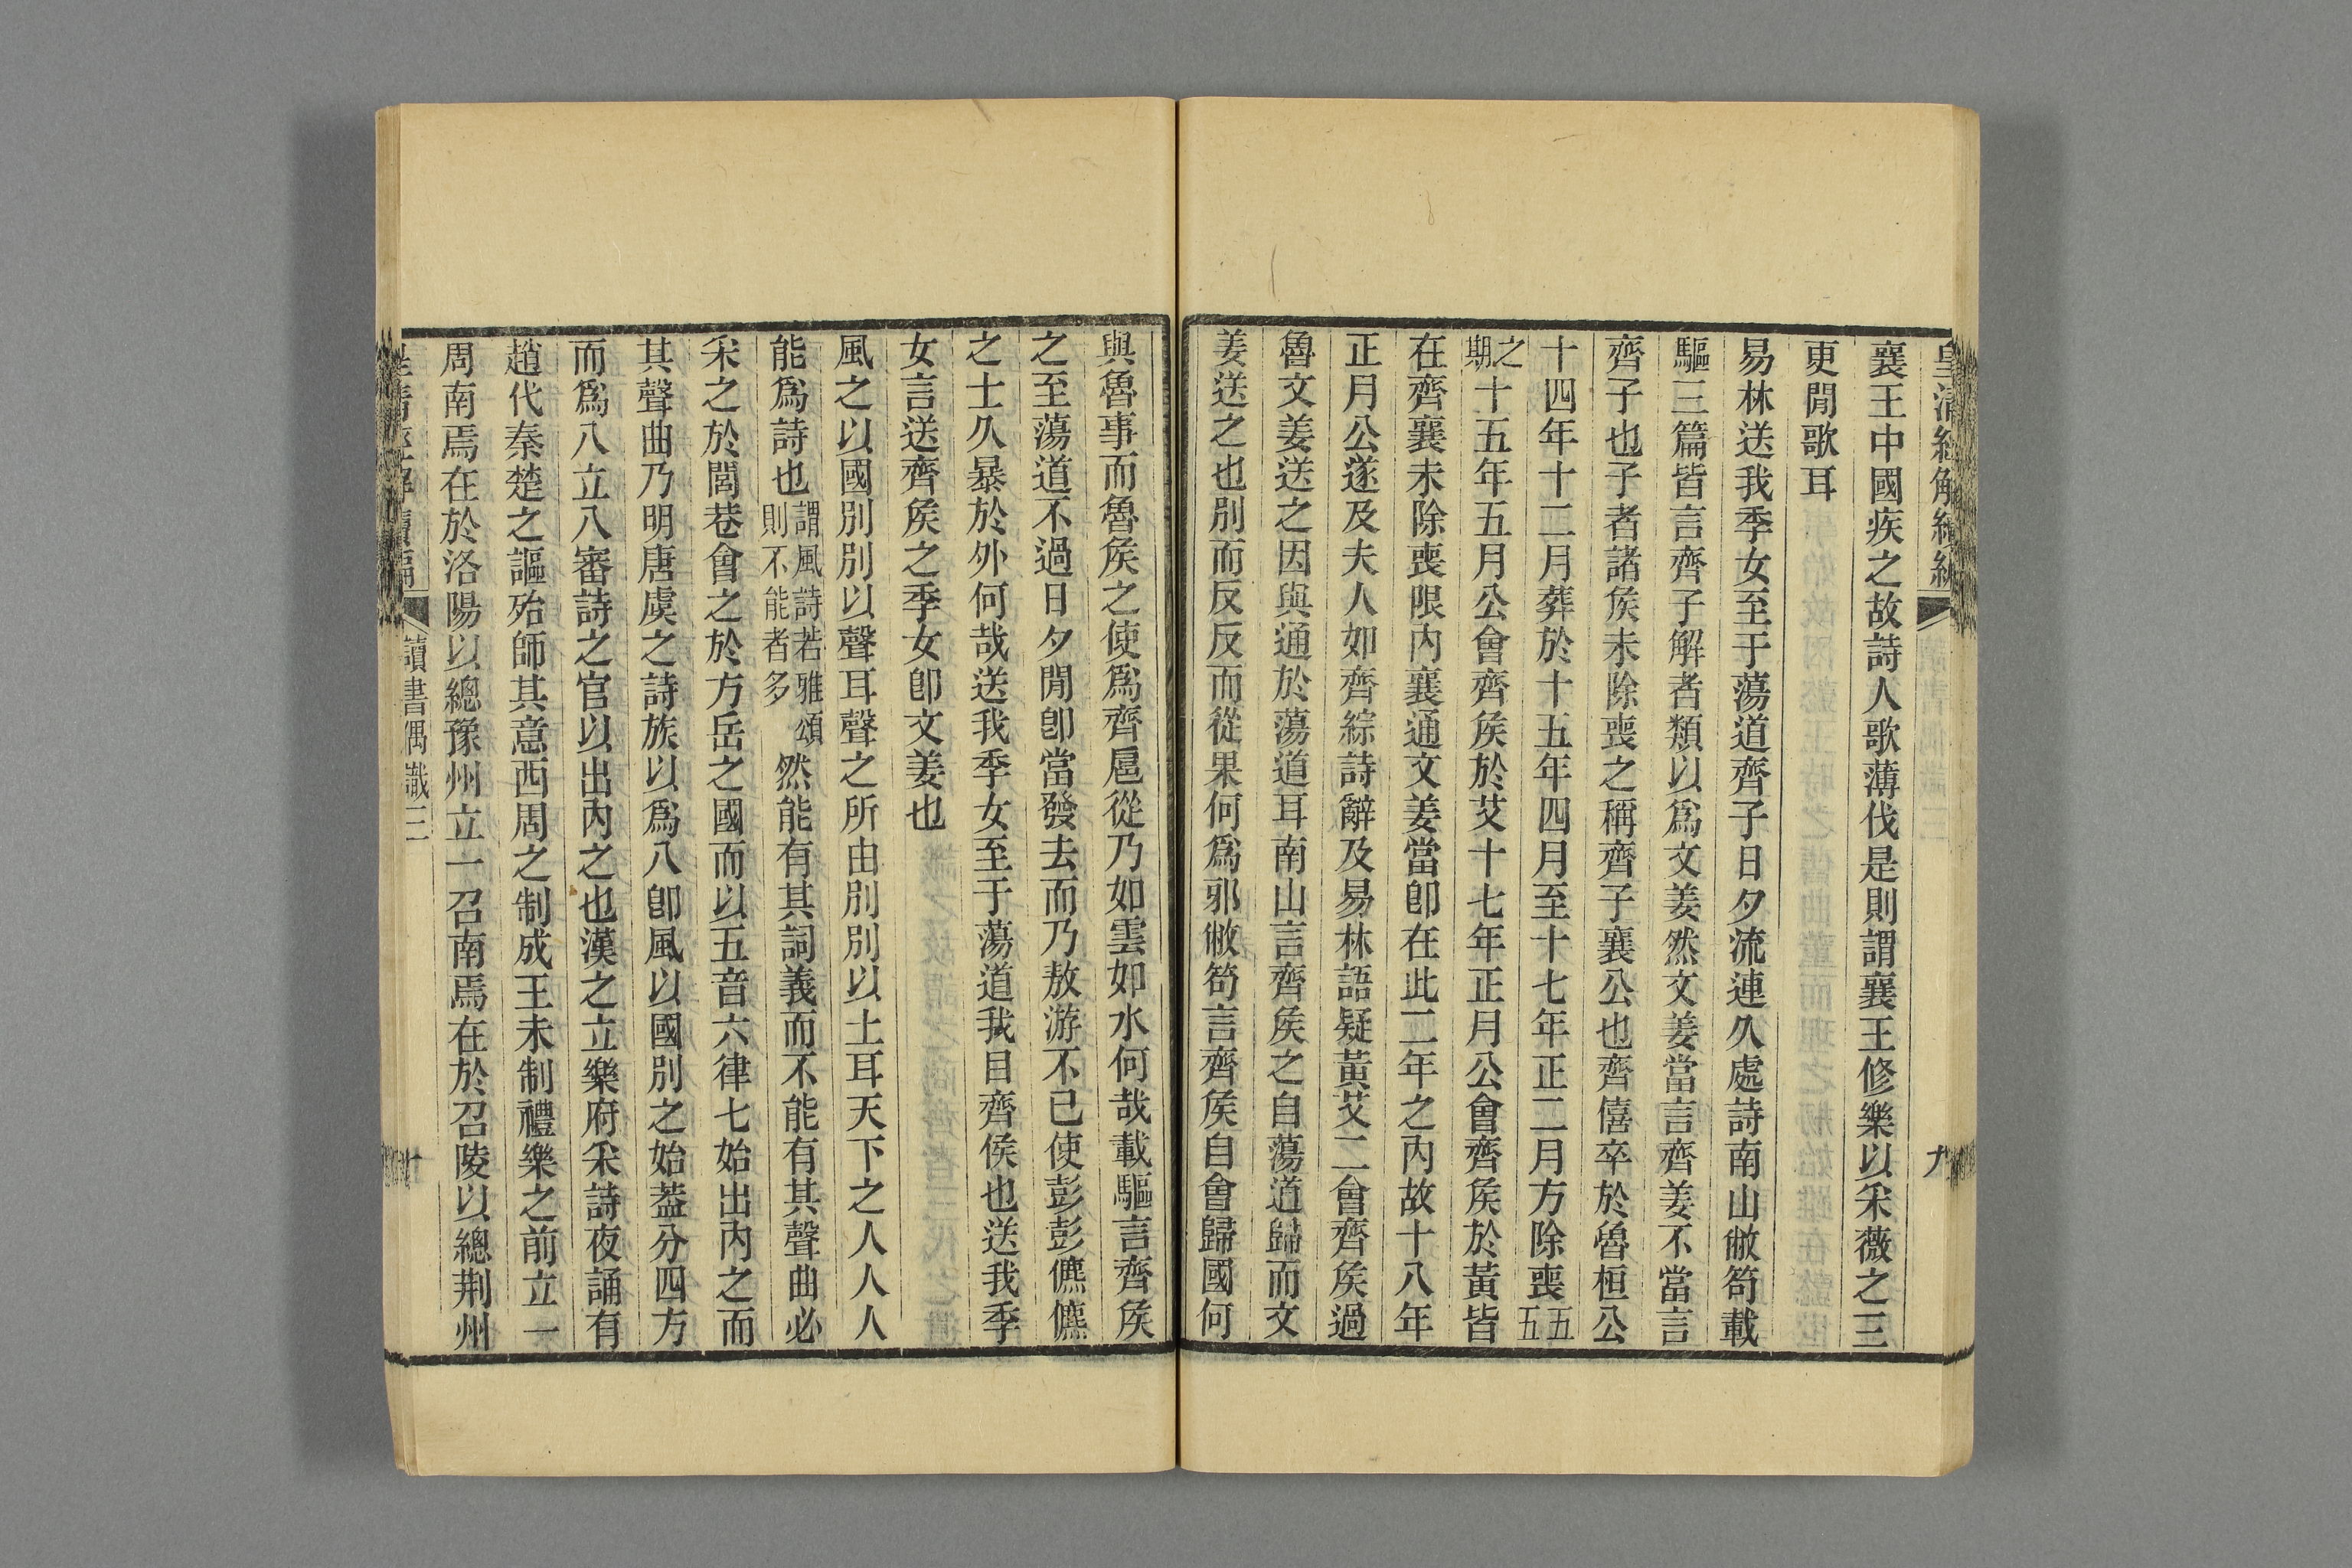 皇清經解續編
九
襄王中國疾之故詩人歌薄伐是則謂襄王修樂以采薇之三
更閒歌耳
易林送我季女至于蕩道齊子日夕流連久處詩南山敝笱載
驅三篇皆言齊子解者類以爲文姜然文姜當言齊姜不當言
齊子也子者諸矦未除喪之稱齊子襄公也齊僖卒於魯桓公
十四年十二月葬於十五年四月至十七年正二月方除喪五五
之期十五年五月公會齊矦於艾十七年正月公會齊矦於黃皆
在齊襄未除喪限內襄通文姜當卽在此二年之內故十八年
正月公遂及夫人如齊綜詩辭及易林語疑黃艾二會齊矦過
魯文姜送之因與通於蕩道耳南山言齊矦之自蕩道歸而文
姜送之也別而反反而從果何爲邪敝笱言齊矦自會歸國何
與魯事而魯矦之使爲齊扈從乃如雲如水何哉載驅言齊矦
之至蕩道不過日夕閒卽當發去而乃敖游不已使彭彭儦儦
之士久暴於外何哉送我季女至于蕩道我目齊侯也送我季
女言送齊矦之季女卽文姜也
風之以國別別以聲耳聲之所由別別以土耳天下之人人人
能爲詩也謂風詩若雅頌則不能者多然能有其詞義而不能有其聲曲必
采之於閭巷會之於方岳之國而以五音六律七始出內之而
其聲曲乃明唐虞之詩族以爲八卽風以國別之始葢分四方
而爲八立八審詩之官以出內之也漢之立樂府采詩夜誦有
趙代秦楚之謳殆師其意西周之制成王未制禮樂之前立一
周南焉在於洛陽以總豫州立一召南焉在於召陵以總荆州
皇清經解續編
讀書偶識三
十